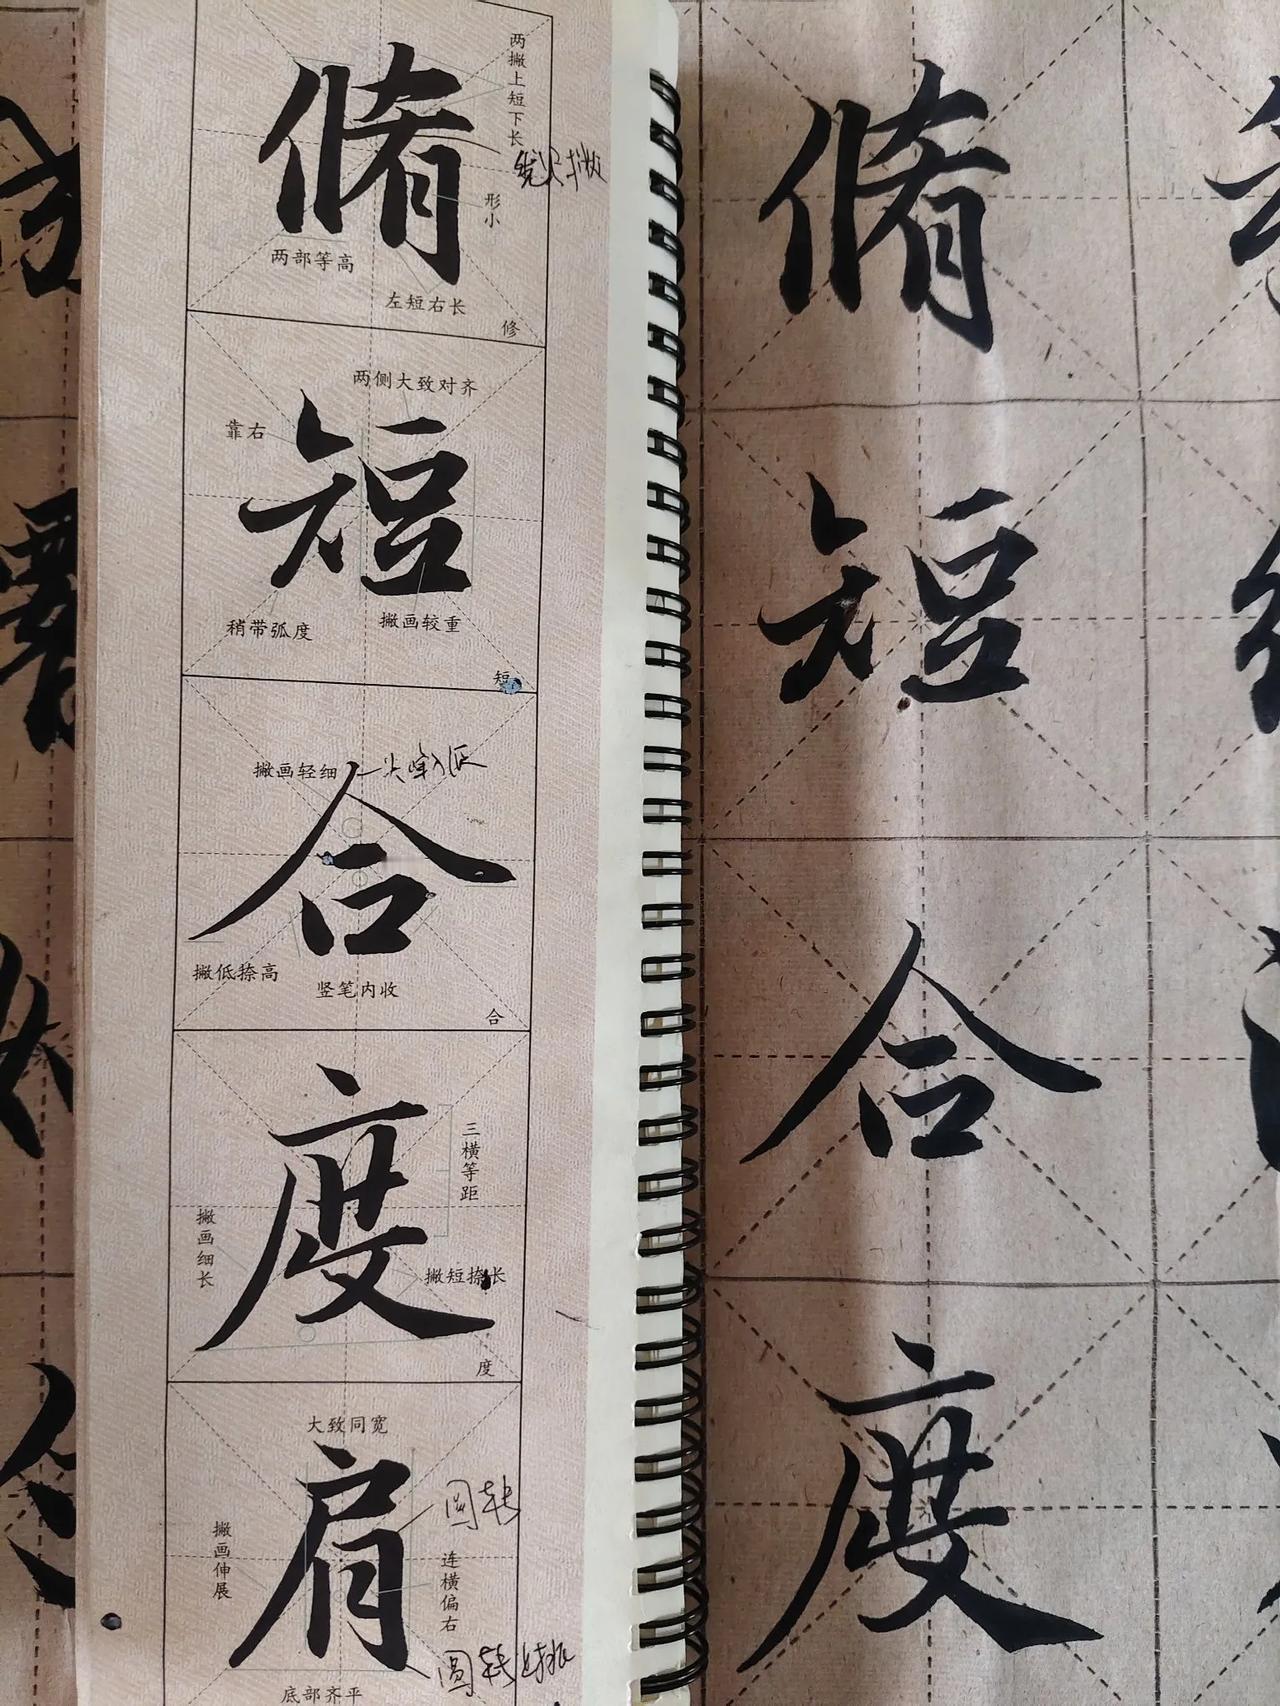 脩
两撇上短下长
形小
两部等高
左短右长
修
两侧大致对齐
靠右
短
稍带弧度
撇画较重
短
撇画轻细
合
撇低捺高
竖笔内收
合
度
三横等距
撇画细长
撇短捺长
度
大致同宽
肩
圆转
撇画伸展
连横偏右
圆转
底部齐平
脩
短
合
度